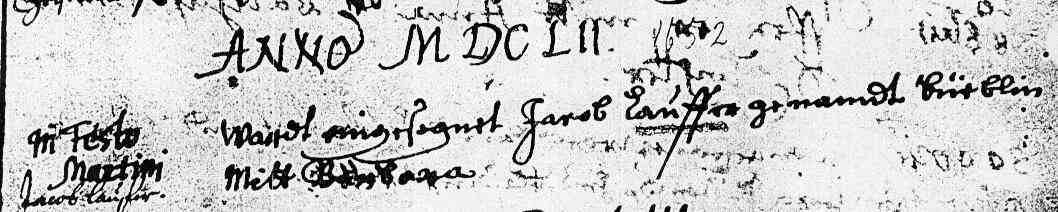 ANNO MDCLII. 1652
m̄ Festo
Martini
Jacob Lauffer.
Wardt eingesegnet Jacob Lauffer genamdt Büeblin
Mitt Barbara